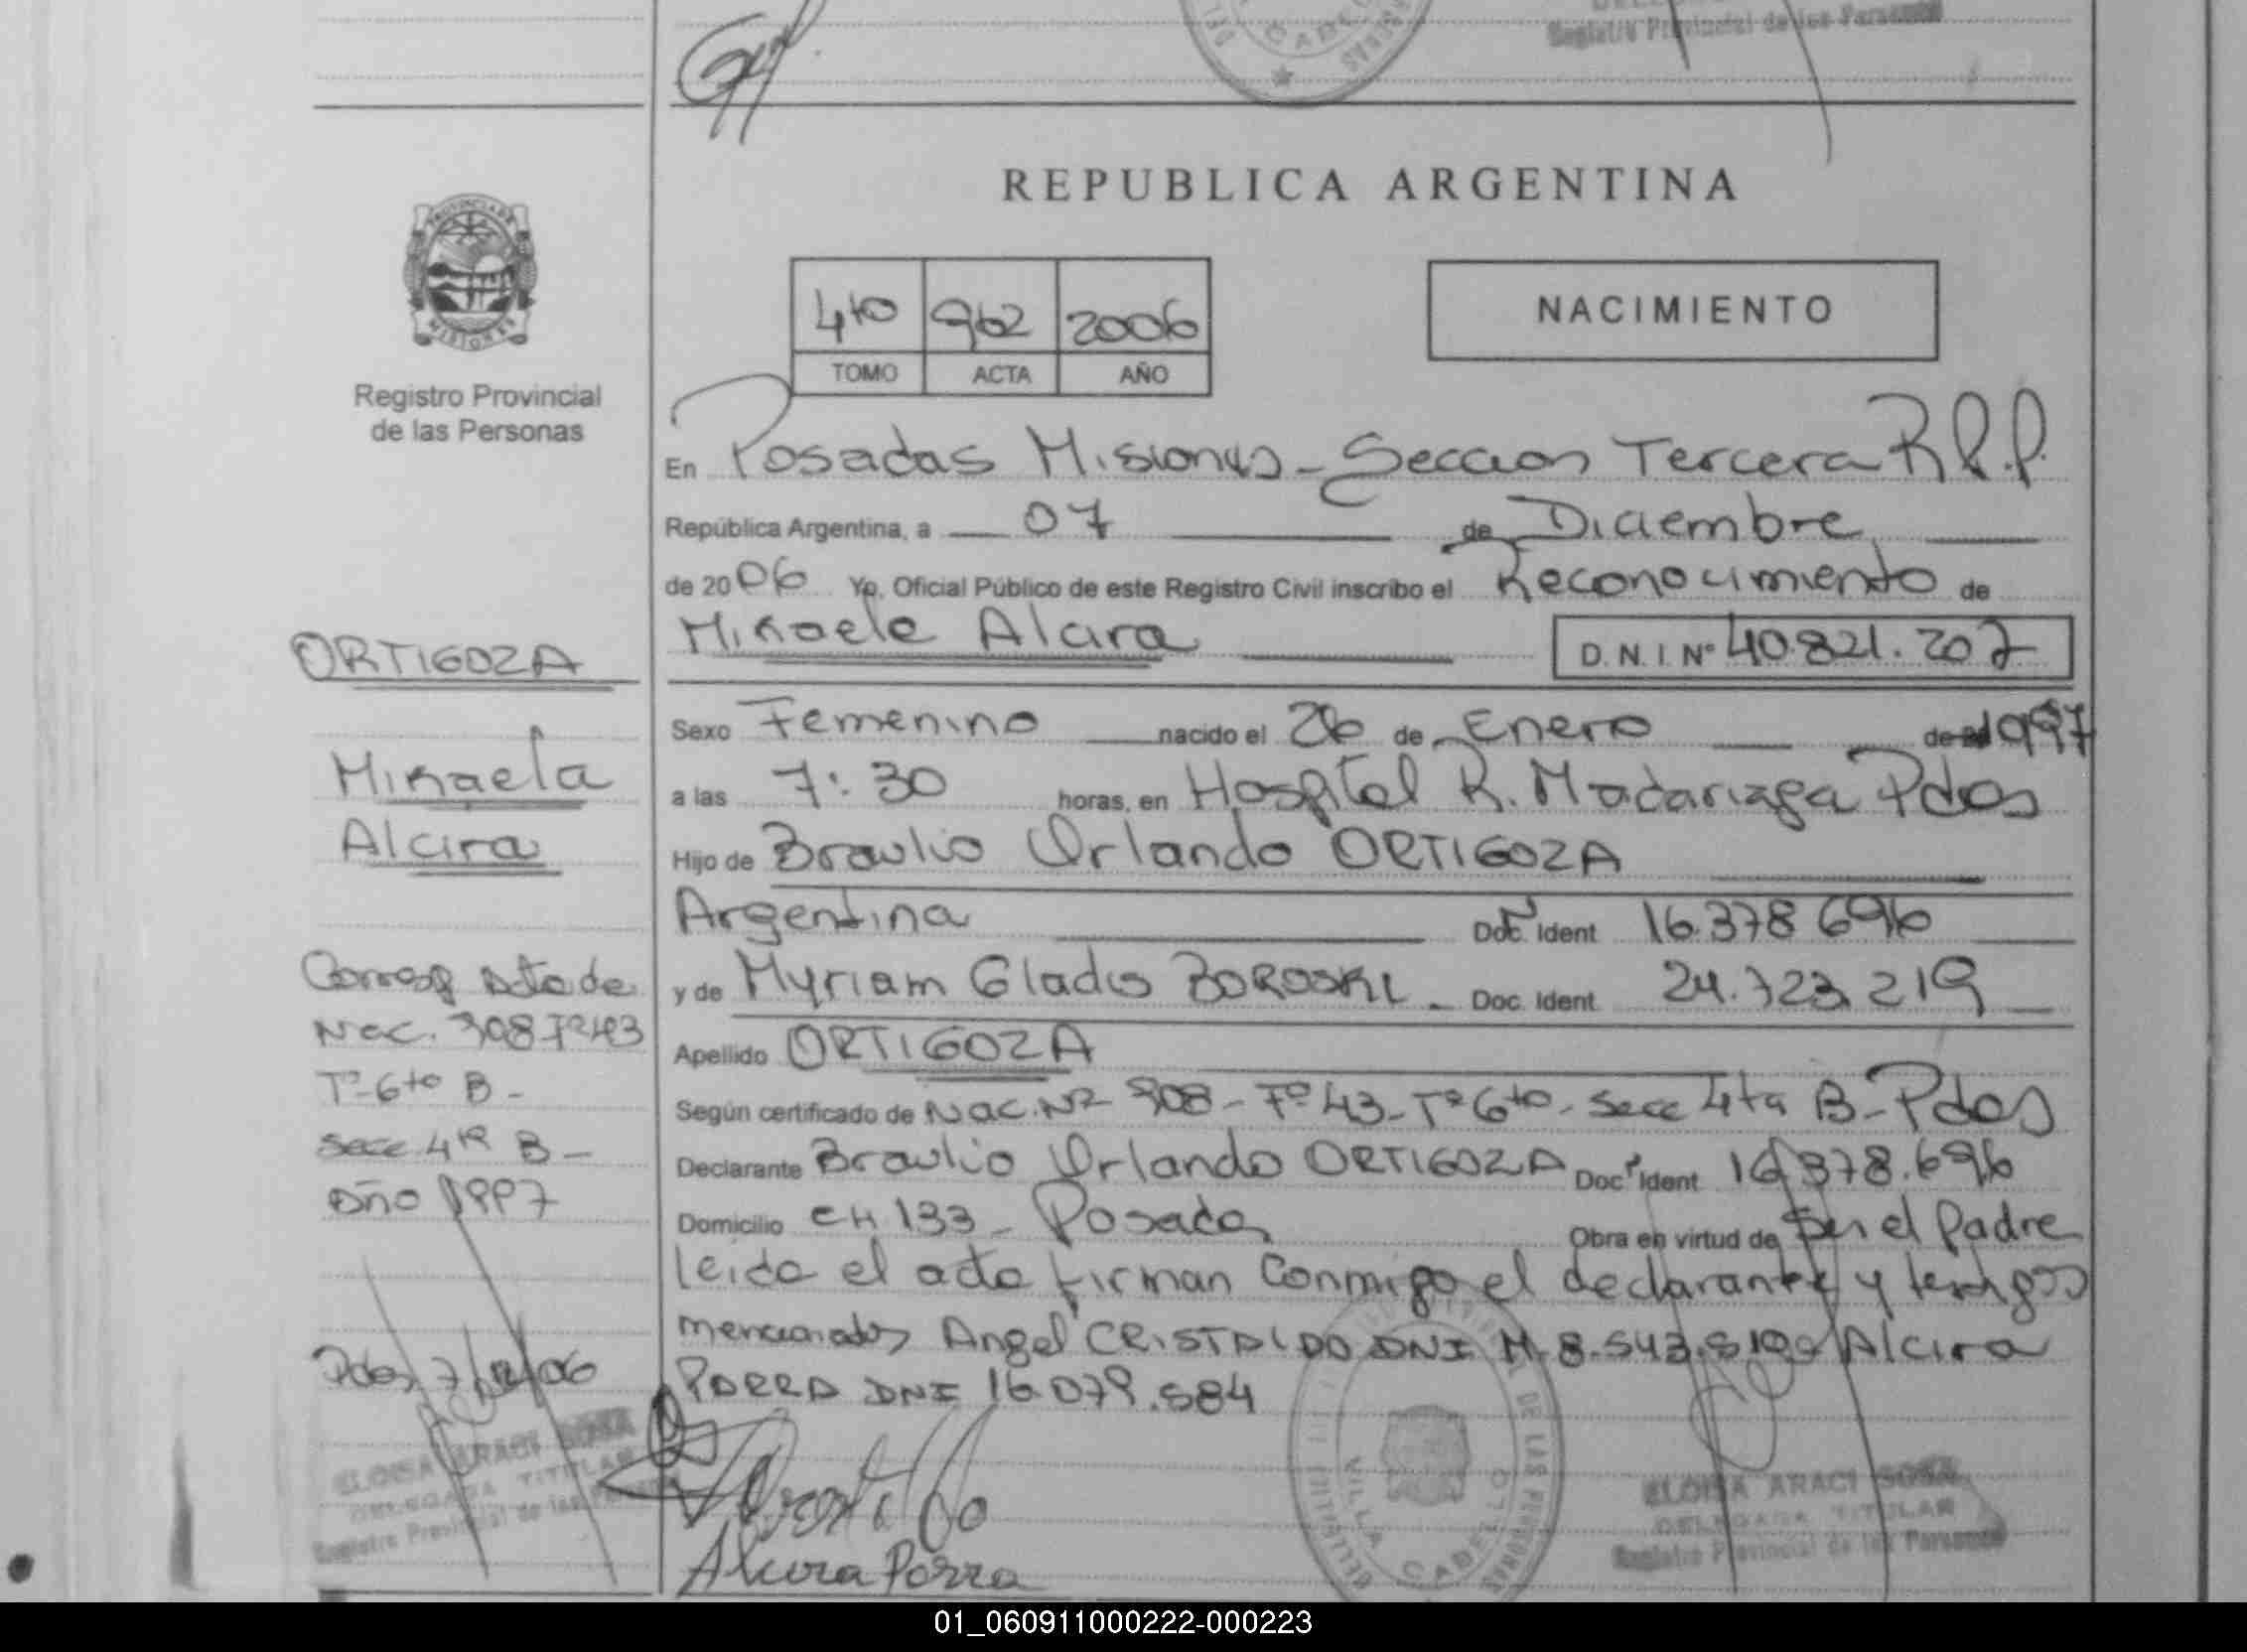 Registro Provincial de las Personas
REPUBLICA ARGENTINA
PROVINCIA DE
MISIONES
Registro Provincial
de las Personas
962 2006
TOMO ACTA AÑO
NACIMIENTO
En Posadas Misiones - Seccion Tercera R.P.P.
República Argentina, a 07 de Diciembre
de 2006 Yo, Oficial Público de este Registro Civil inscribo el Reconocimiento de
Mikaela Alcira D.N.I. Nº 40.821.207
Sexo Femenino nacido el 26 de Enero de 1997
a las 7:30 horas, en Hospital R. Madariaga Pdas
Hijo de Braulio Orlando ORTIGOZA
Argentina Doc. Ident 16.378.696
y de Myriam Gladis BOROSKI - Doc. Ident. 24.723.219
Apellido ORTIGOZA
Según certificado de Nac. Nº 308 - Fº 43 - Tº 6to - Secc 4ta B - Pdas
Declarante Braulio Orlando ORTIGOZA Doc. Ident 16.378.696
Domicilio CH 133 - Posadas Obra en virtud de Ser el Padre
leida el acta firman Conmigo el declarante y testigos
mencionados Angel CRISTALDO DNI M 8.543. Alcira
PORRA DNI 16.079.584
Alcira Porra
ORTIGOZA
Mikaela
Alcira
Corresp Acta de
Nac. 308 Fº 43
Tº 6to B -
Secc 4ta B -
Año 1997
Pdas 7/12/06
ELOISA ARACI SOSA
DELEGADA TITULAR
Registro Provincial de las Personas
VILLA CABELLO
DE LAS PERSONAS
ELOISA ARACI SOSA
DELEGADA TITULAR
Registro Provincial de las Personas
01_060911000222-000223